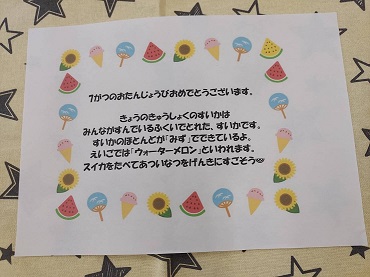 7がつのおたんじょうびおめでとうございます。
きょうのきゅうしょくのすいかは
みんながすんでいるふくいでとれた、すいかです。
すいかのほとんどが「みず」でできているよ。
えいごでは「ウォーターメロン」といわれます。
スイカをたべてあついなつをげんきにすごそう